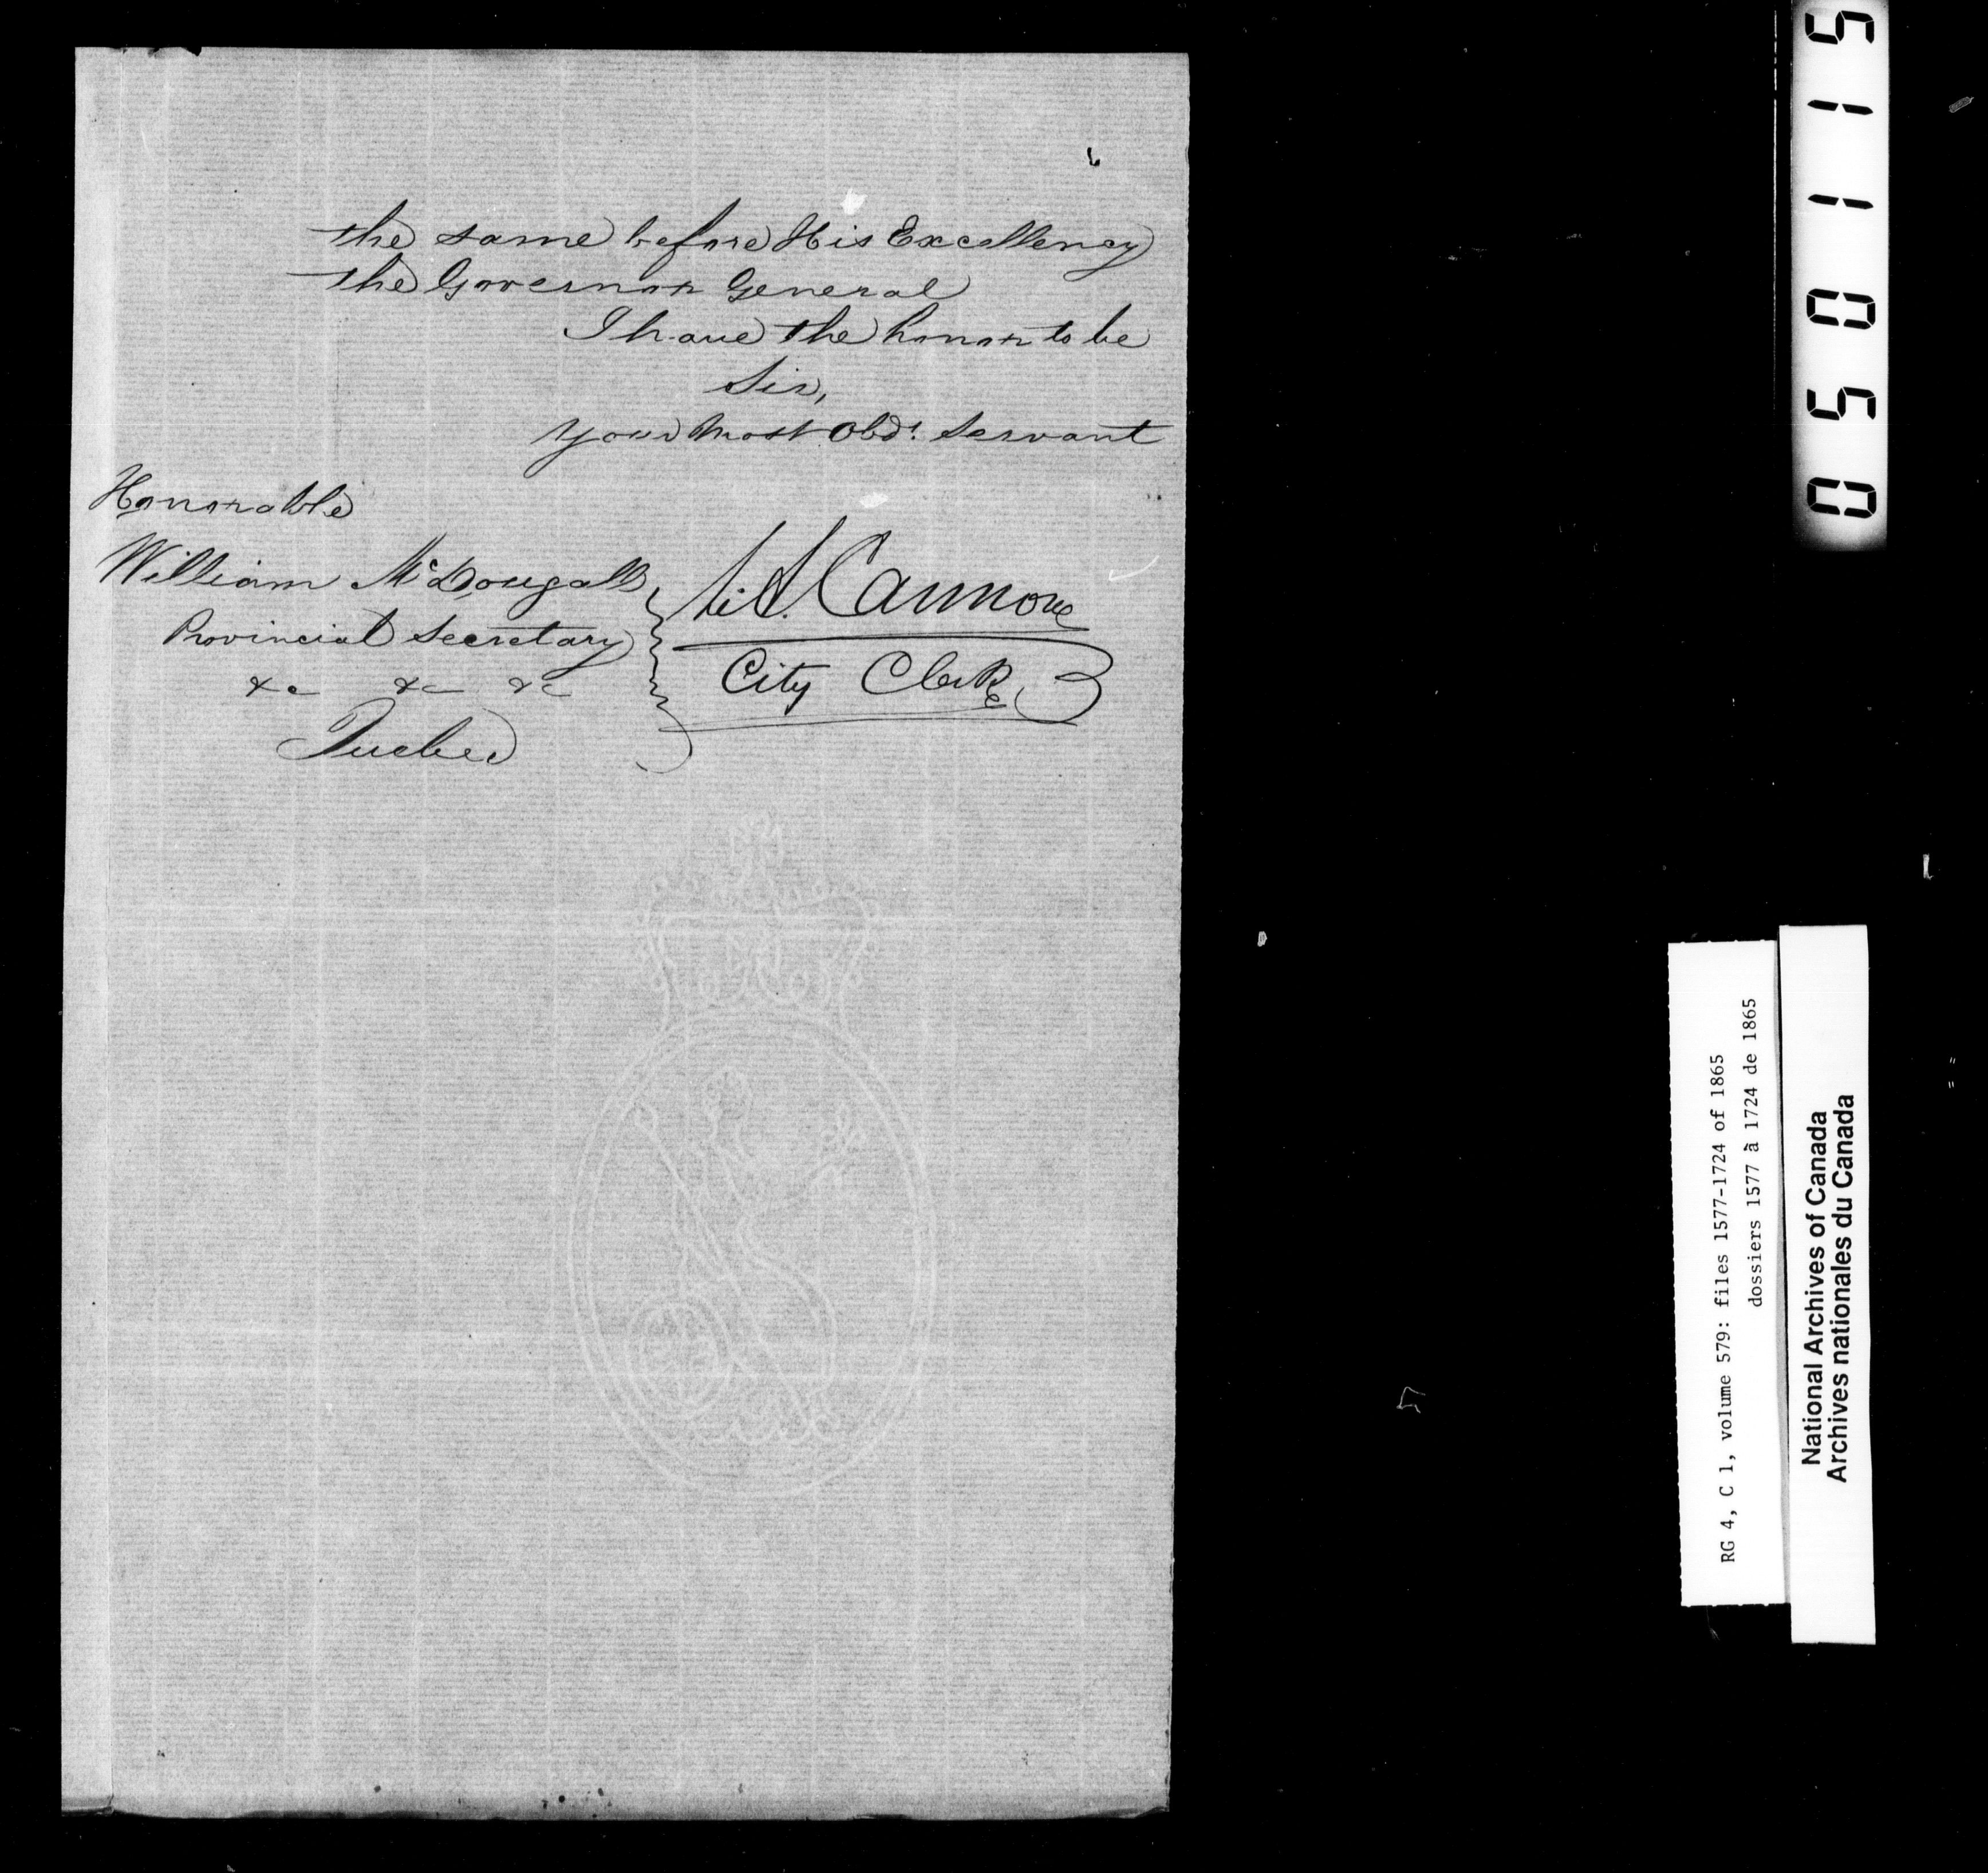 the same before His Excellency
the Governor General
I have the honor to be
Sir,
Your Most Obdt. Servant
Honorable
William McDougall
Provincial Secretary
&c &c &c
Quebec
Cannon
City Clerk
050115
RG 4, C 1, volume 579: files 1577-1724 of 1865
dossiers 1577 à 1724 de 1865
National Archives of Canada
Archives nationales du Canada